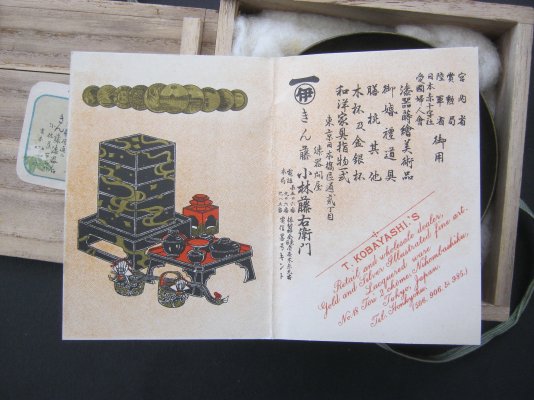 宮内省
賞勲局
陸軍省 御用
日本赤十字社
愛国婦人會
漆器蒔繪美術品
御婚禮道具
膳椀其他
木杯及金銀杯
和洋家具指物一式
東京日本橋区通弐丁目
漆器問屋
伊 きん藤 小林藤右衛門
T. KOBAYASHI.'S
Retail and wholesale dealer,
Gold and Silver Illustrated fine art.
Lacquered ware
No. 16 Tori 2 chome. Nihombashiku.
Tokyo, Japan.
Tel. Honkyoku.
(506. 906. & 995.)